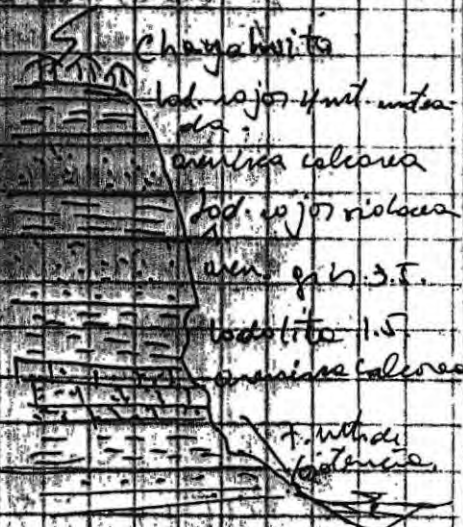 Chayahuita
lod. rojos 4 mt. motea-
da.
arenisca calcarea
lod. rojos violacea
aren. gris 3.5.
lodolita 1.5
arenisca calcarea
7. mts de
potencia.